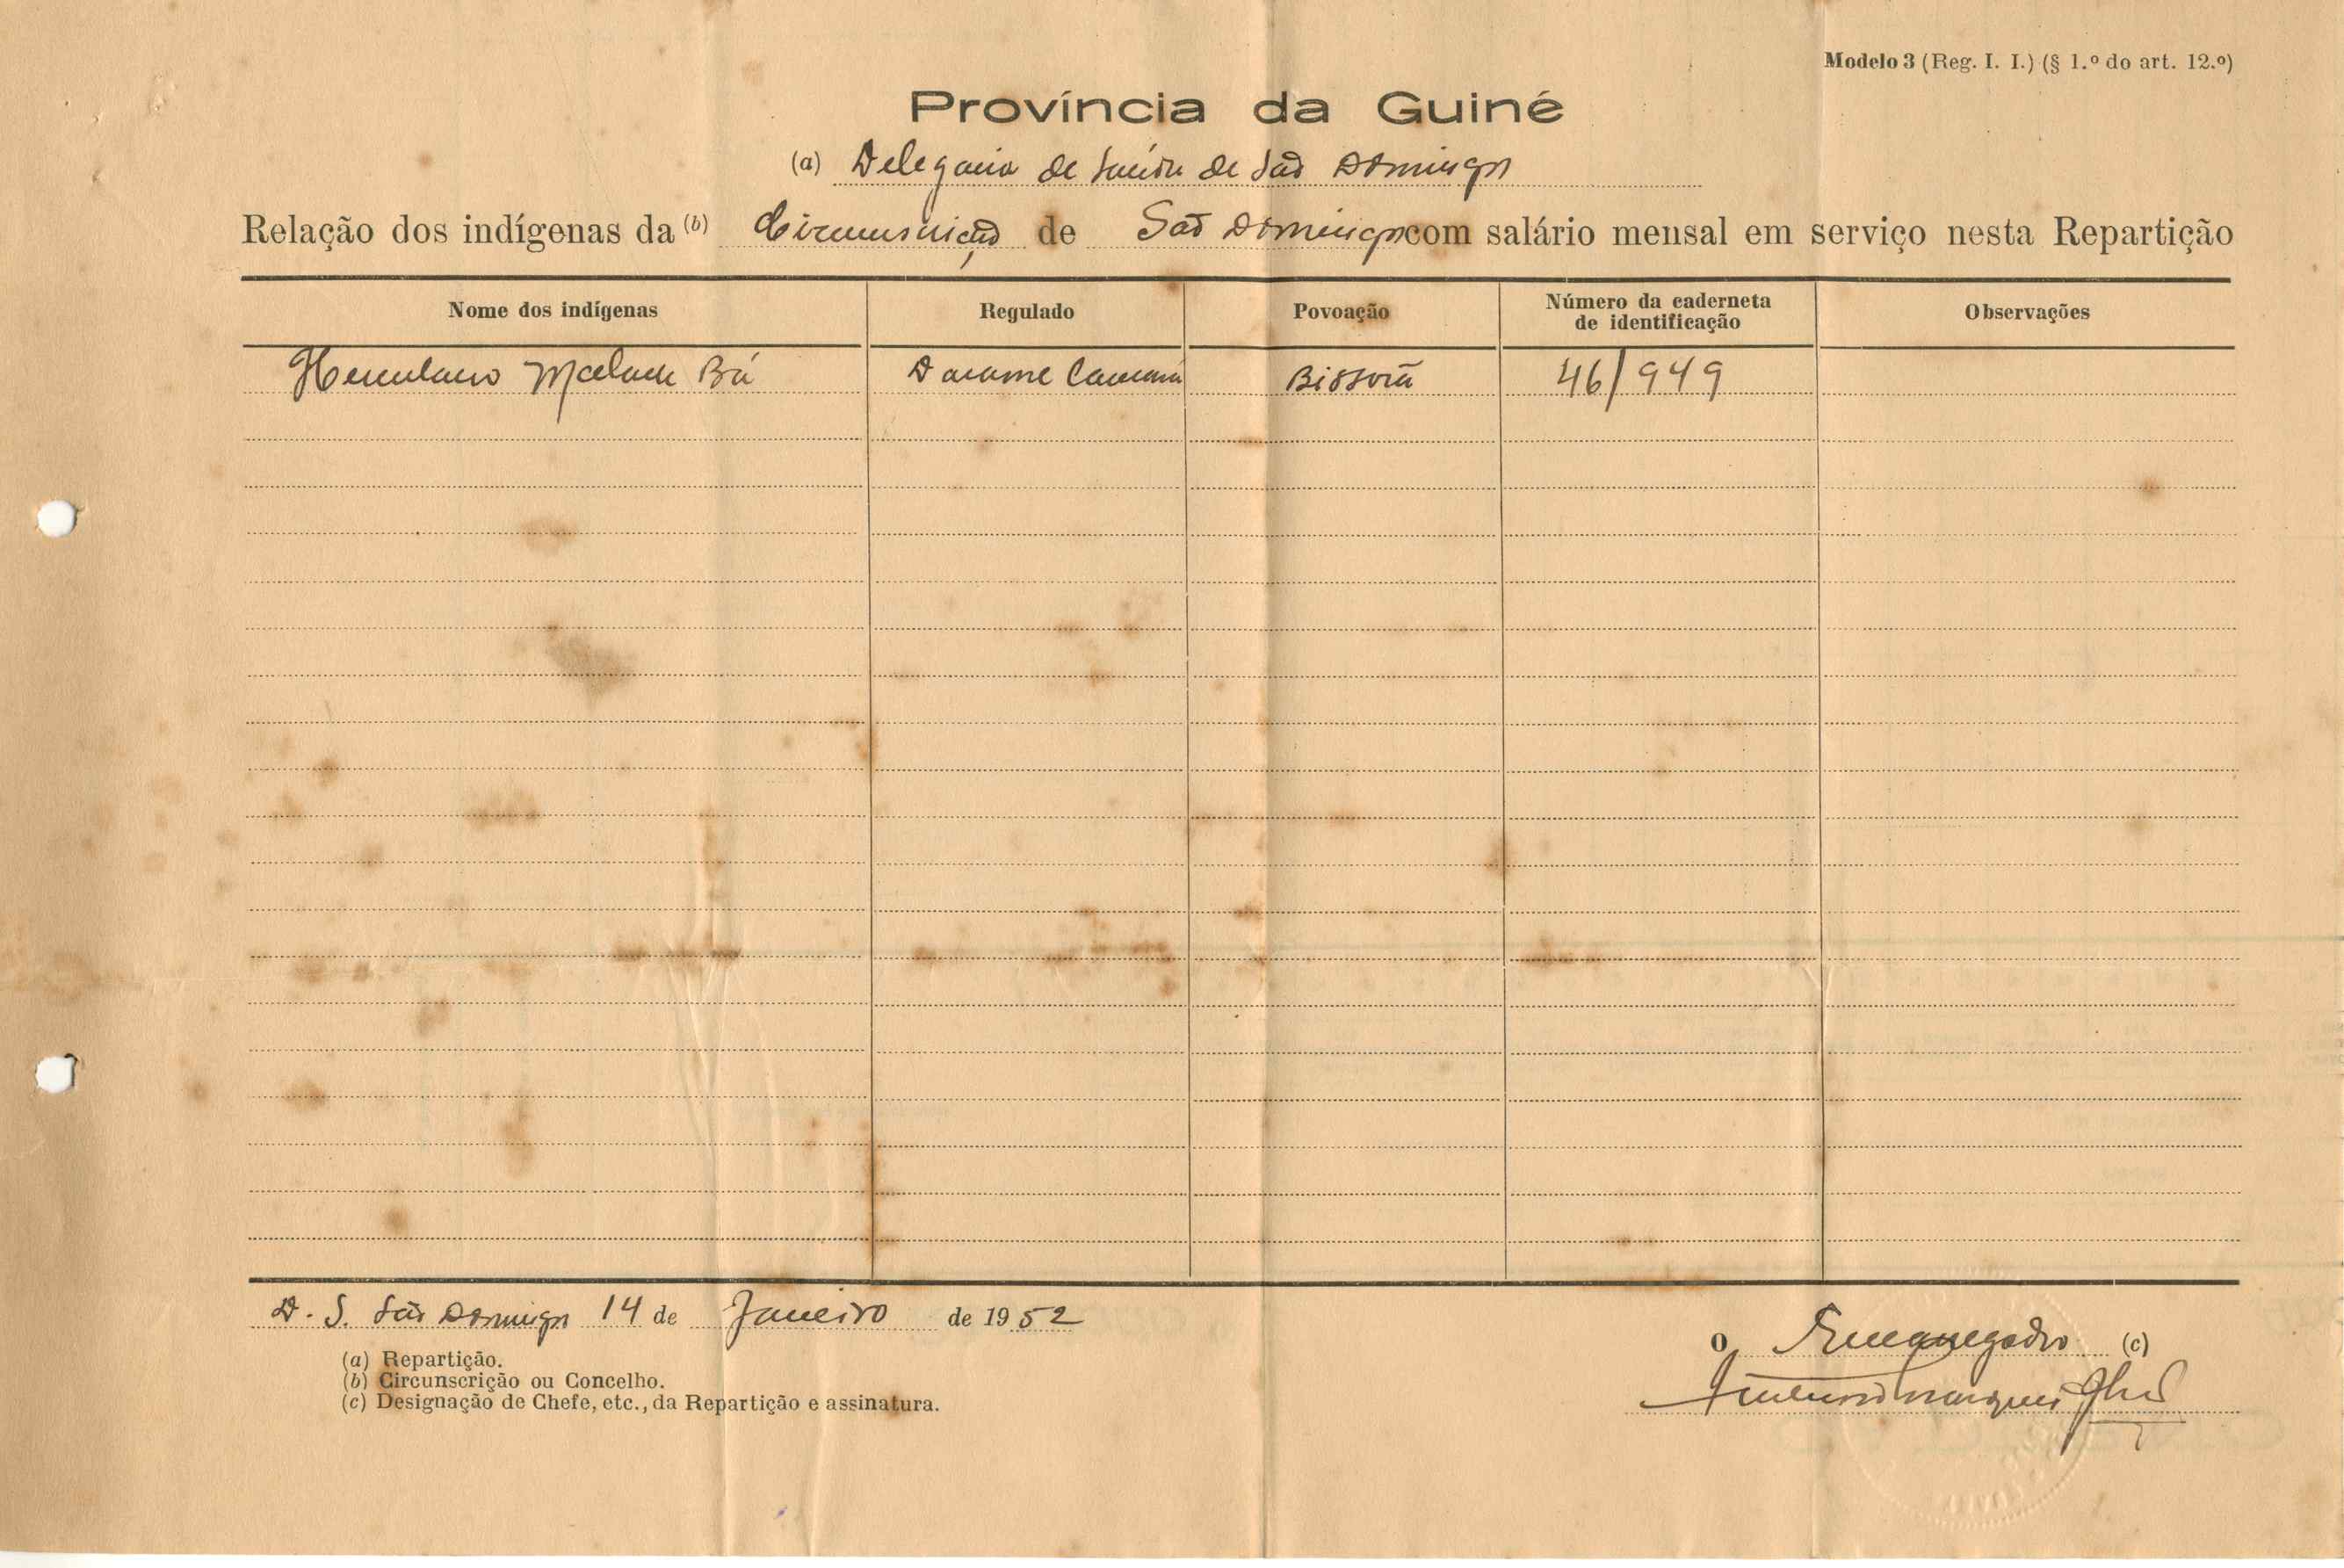 Modelo 3 (Reg. I. I.) (§ 1.º do art. 12.º)
Província da Guiné
(a) Delegacia de Saúde de São Domingos
Relação dos indígenas da (b) Circunscrição de São Domingos com salário mensal em serviço nesta Repartição
Nome dos indígenas Regulado Povoação Número da caderneta de identificação Observações
Herculano Bá Darame Camará Bissorã 46/949
D. S. São Domingos 14 de Janeiro de 1952
(a) Repartição.
(b) Circunscrição ou Concelho.
(c) Designação de Chefe, etc., da Repartição e assinatura.
O Encarregado (c)
Marques